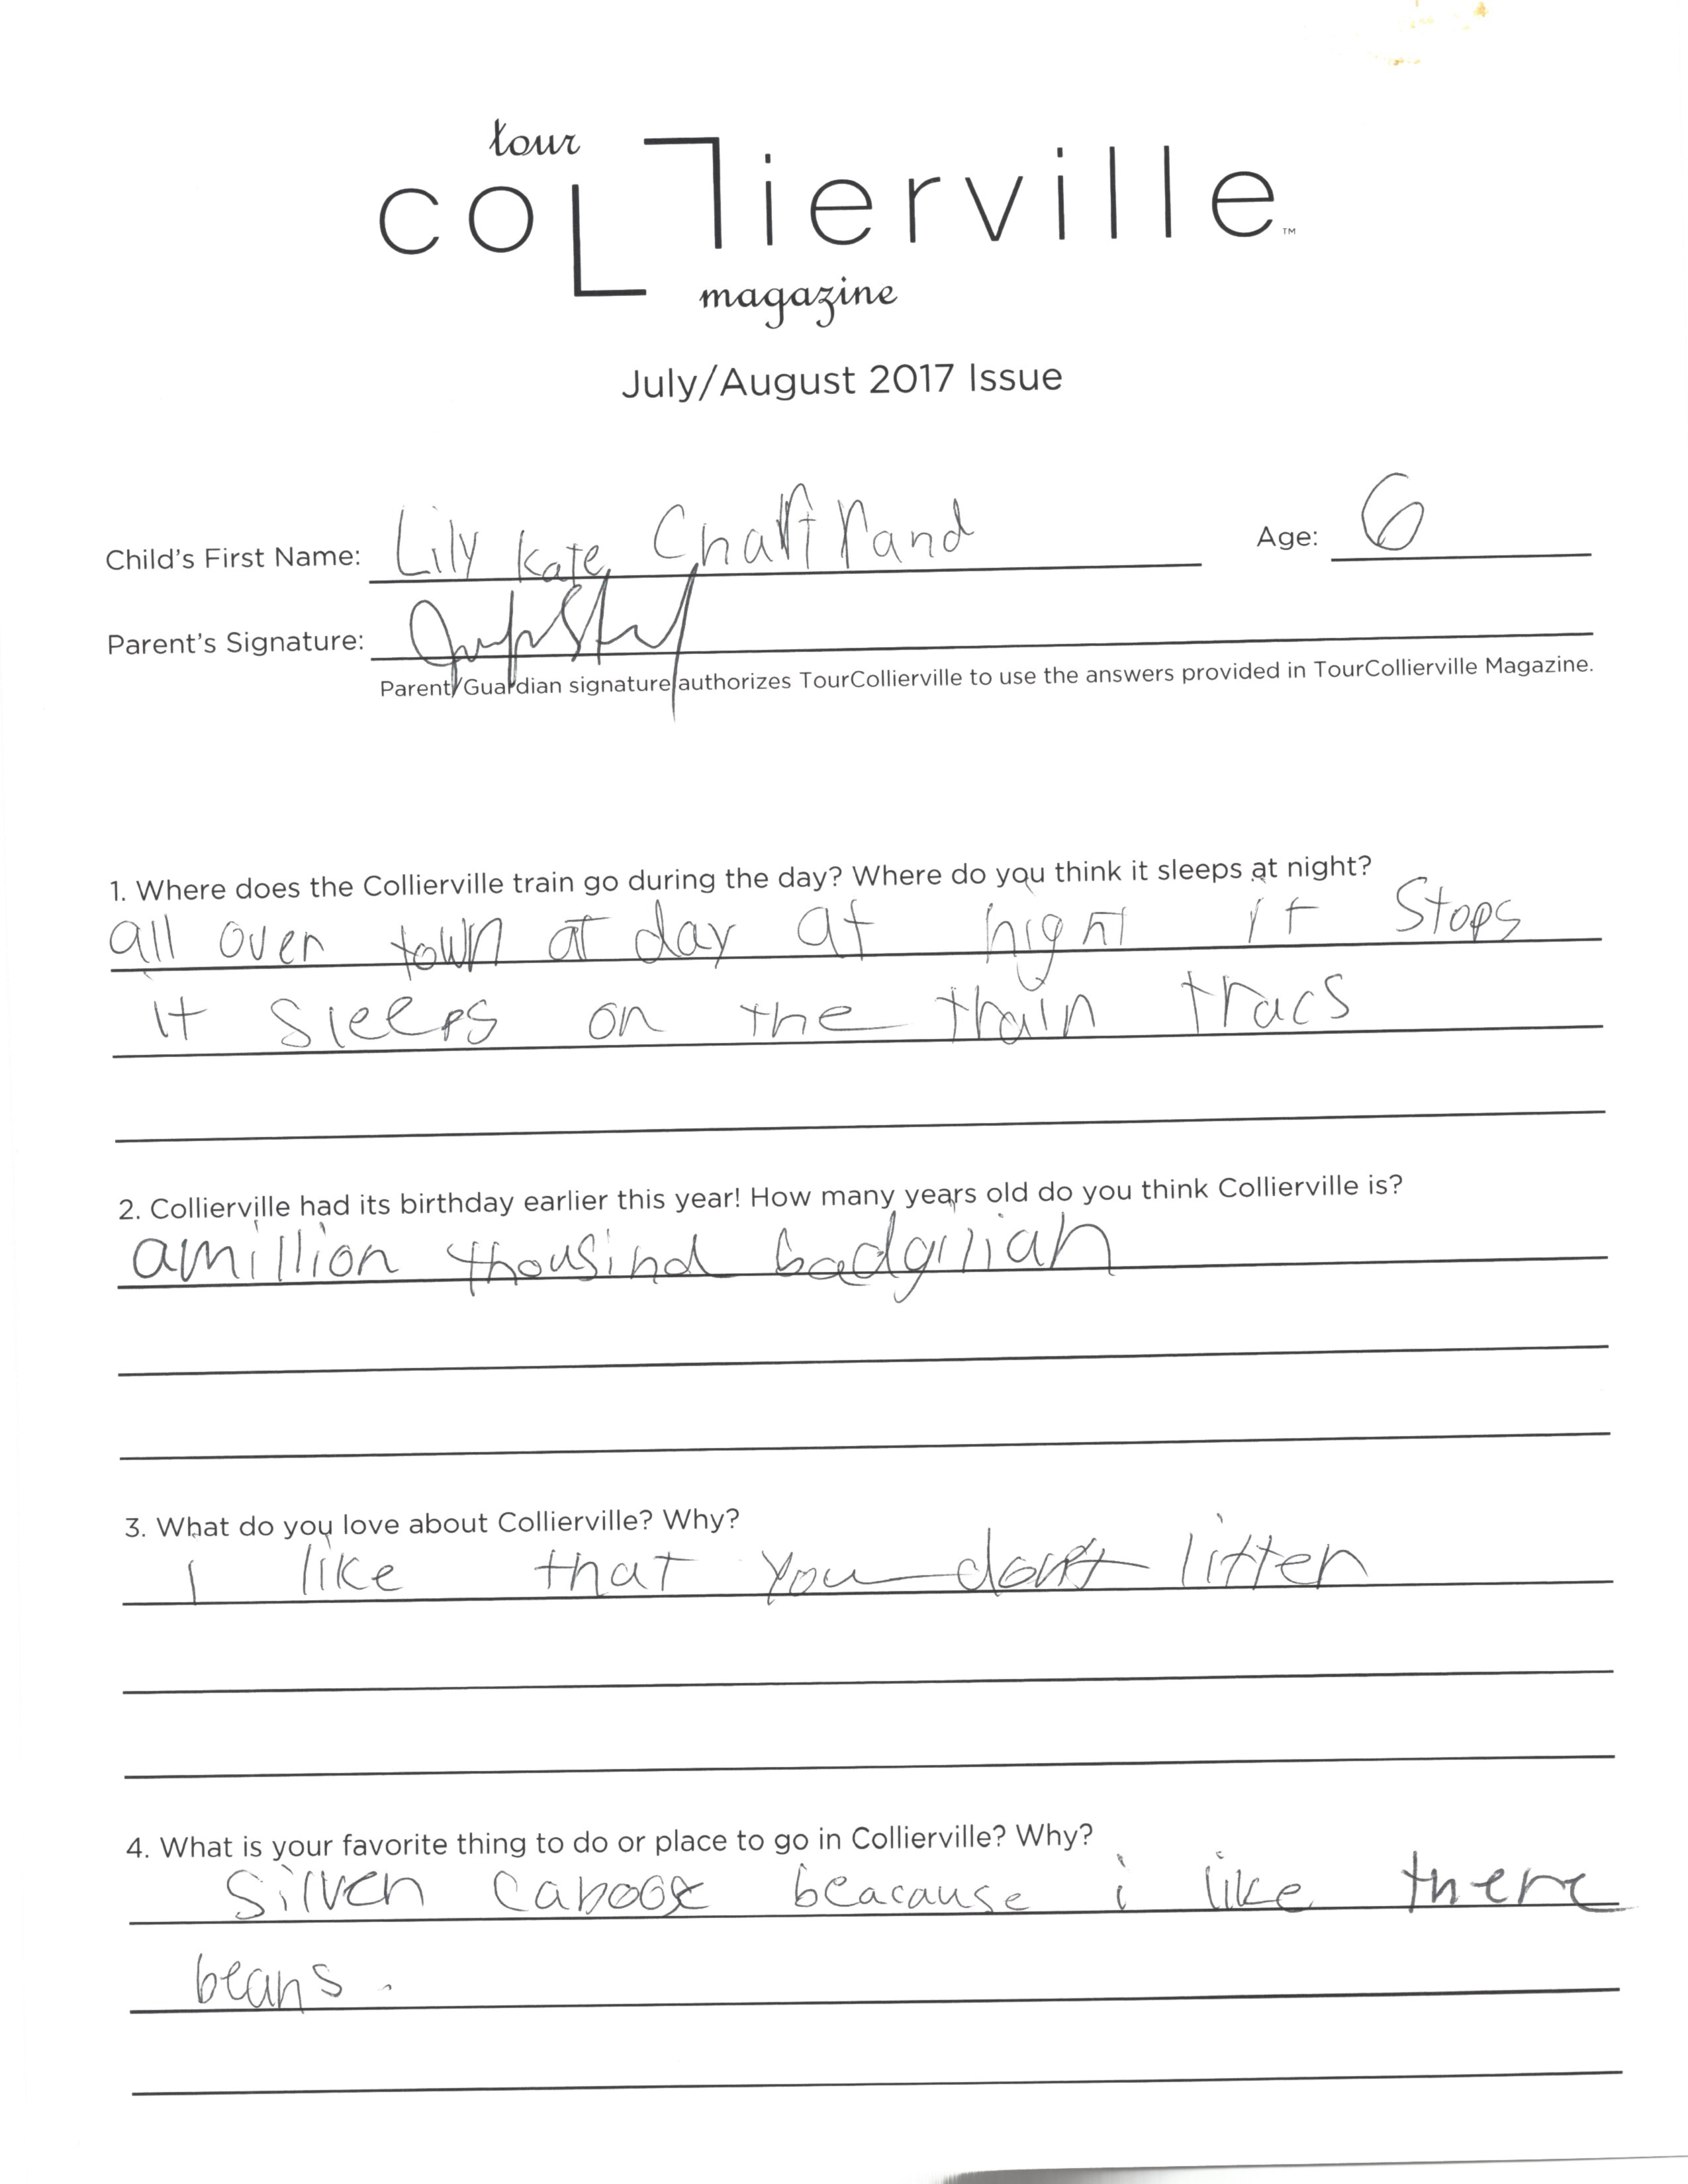 tour
collierville™
magazine
July/August 2017 Issue
Child's First Name: Lily Kate Chartrand Age: 6
Parent's Signature:
Parent/Guardian signature authorizes TourCollierville to use the answers provided in TourCollierville Magazine.
1. Where does the Collierville train go during the day? Where do you think it sleeps at night?
all over town at day at night it stops
it sleeps on the train tracs
2. Collierville had its birthday earlier this year! How many years old do you think Collierville is?
amillion thousind badgilian
3. What do you love about Collierville? Why?
I like that you dont litter
4. What is your favorite thing to do or place to go in Collierville? Why?
Silver Caboose beacause i like there
beans.